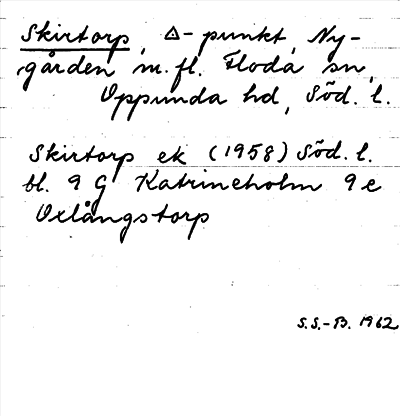 Skirtorp, △-punkt, Ny-
gården m.fl. Floda sn,
Oppunda hd, Söd. l.
Skirtorp ek (1958) Söd. l.
bl. 9 G Katrineholm 9 e
Oxlångstorp
S.S.-B. 1962